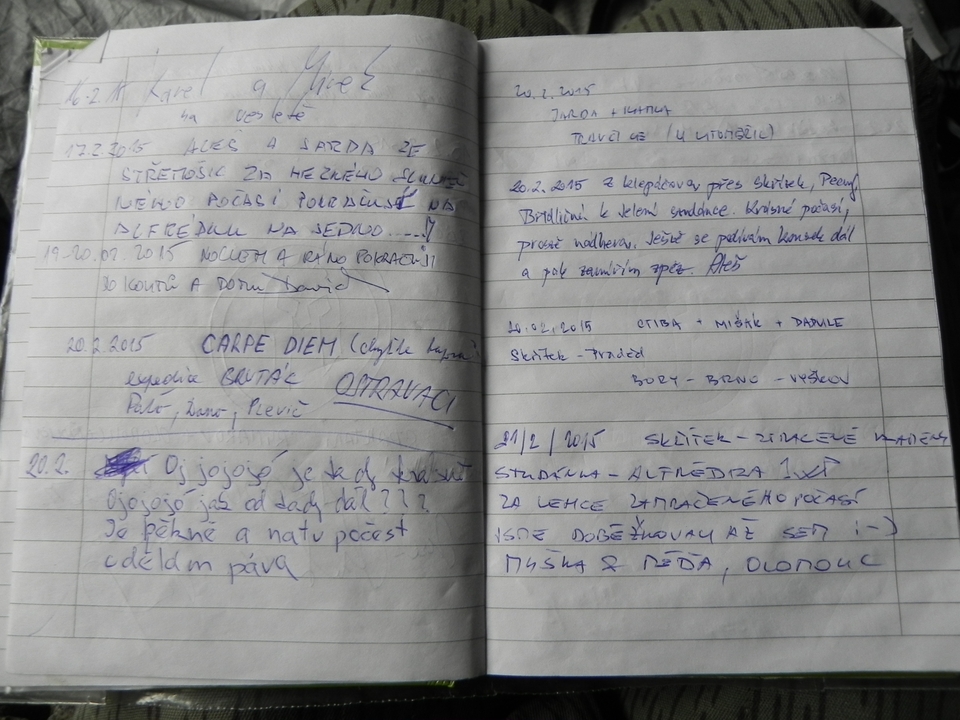 16.2.15 Karel a Mirek
na vesletě
17.2.2015 ALEŠ A JARDA ZE
STŘEMOŠIC ZA HEZKÉHO SLUNEČ
NÉHO POČASÍ POKRAČUJÍ NA
ALFRÉDKU NA JEDNO....!
19-20.02.2015 NOCLEH A RÁNO POKRAČUJI
DO KOUTŮ A DOMŮ David
20.2.2015 CARPE DIEM (chyťte kapra)
expedice BRUTÁC OSTRAVACI
Palo, Dano, Plevič
20.2. Oj jojojó je tady krásně
Ojojojó jak od tady dál???
Je pěkně a natu počest
udělám páva
20.2.2015
JARDA + KATKA
TRAVČICE (U LITOMĚŘIC)
20.2.2015 Z Klepáčova přes Skřítek, Pecny,
Břidličnou k Jelení studánce. Krásné počasí,
prostě nádhera. Ještě se podívám kousek dál
a pak zamířím zpět. Aleš
20.02.2015 CTIBA + MIŠÁK + DANULE
Skřítek - Praděd
BORY - BRNO - VYŠKOV
21/2/2015 SKŘÍTEK - ZTRACENÉ KAMENY
STUDÁNKA - ALFRÉDKA
ZA LEHCE ZAMRAČENÉHO POČASÍ
JSME DOBĚŽKOVALI AŽ SEM :-)
MYŠKA & MÉĎA, OLOMOUC